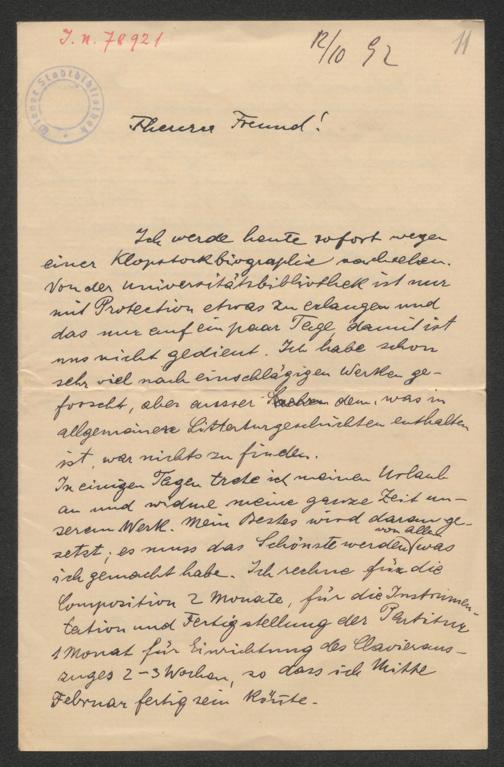 J. N. 78921
12/10 92
11
Wiener Stadtbibliothek
Theurer Freund!
Ich werde heute sofort wegen
einer Klopstockbiographie nachsehen.
Von der Universitätsbibliothek ist nur
mit Protection etwas zu erlangen und
das nur auf ein paar Tage, damit ist
uns nicht gedient. Ich habe schon
sehr viel nach einschlägigen Werken ge-
forscht, aber ausser dem, was in
allgemeinere Litteraturgeschichten enthalten
ist, war nichts zu finden.
In einigen Tagen trete ich meinen Urlaub
an und widme meine ganze Zeit un-
serem Werk. Mein Bestes wird daran ge-
setzt; es muss das Schönste werden von allen was
ich gemacht habe. Ich rechne für die
Composition 2 Monate, für die Instrumen-
tation und Fertigstellung der Partitur
1 Monat für Einrichtung des Clavieraus-
zuges 2-3 Wochen, so dass ich Mitte
Februar fertig sein könnte.